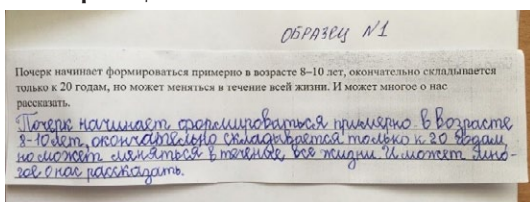 ОБРАЗЕЦ N1
Почерк начинает формироваться примерно в возрасте 8–10 лет, окончательно складывается
только к 20 годам, но может меняться в течение всей жизни. И может многое о нас
рассказать.
Почерк начинает формироваться примерно в возрасте
8-10 лет, окончательно складывается только к 20 годам,
но может меняться в течение все жизни. И может мно-
гое о нас рассказать.